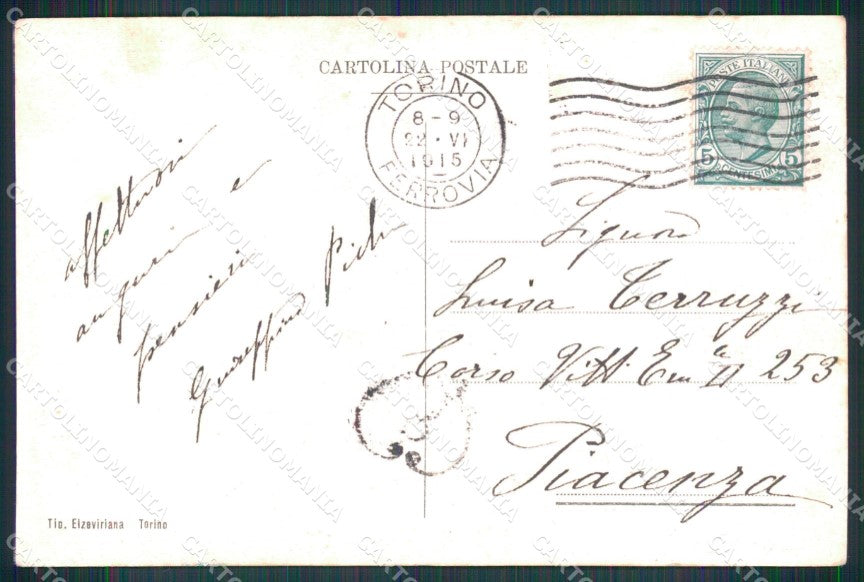 CARTOLINA POSTALE
TORINO
8-9
22·VI
1915
FERROVIA
POSTE ITALIANE
5 5
CENTESIMI
affettuosi
auguri e
pensieri
Giuseppina
Signora
Luisa Terruzzi
Corso Vitt. Em. II 253
Piacenza
Tip. Elzeviriana Torino
CARTOLINOMANIA